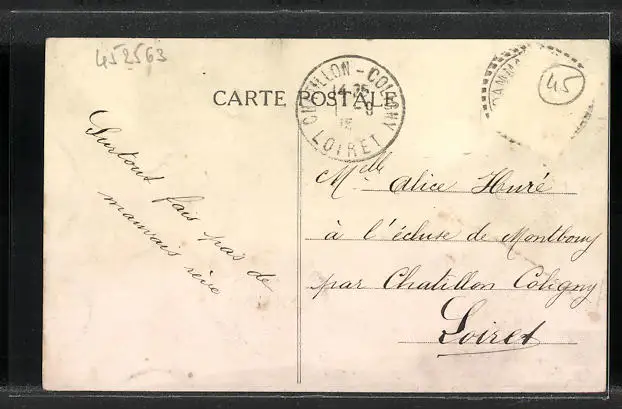 452563
CARTE POSTALE
CHATILLON-COLIGNY
14-35
1-9
15
LOIRET
DAMMA
45
Surtout fais pas de
mauvais rêve
Melle Alice Huré
à l'écluse de Montbouy
par Chatillon Coligny
Loiret